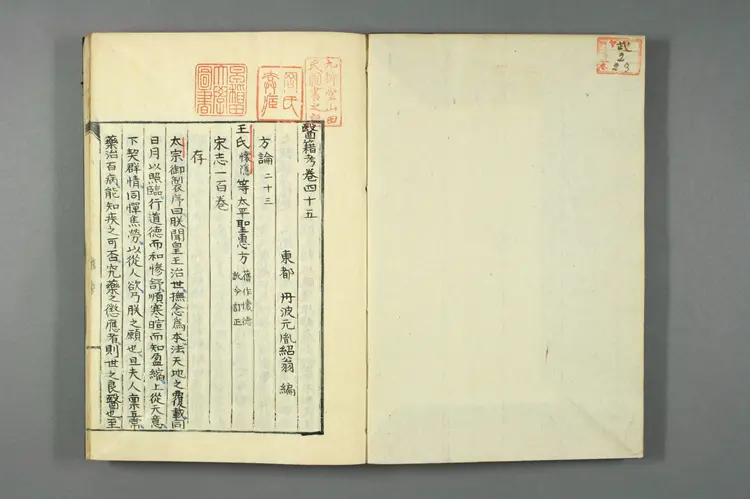 醫籍考卷四十五
東都 丹波元胤紹翁 編
方論二十三
王氏懷隱等太平聖惠方舊作懷德訛今訂正
宋志一百卷
存
太宗御製序曰朕聞皇王治世撫念為本法天地之覆載同
日月以照臨行道德而和慘舒順寒暄而知盈縮上從天意
下契群情罔憚焦勞以從人欲乃朕之願也且夫人稟五常
藥治百病能知疾之可否究藥之徵應者則世之良醫也至
2
23